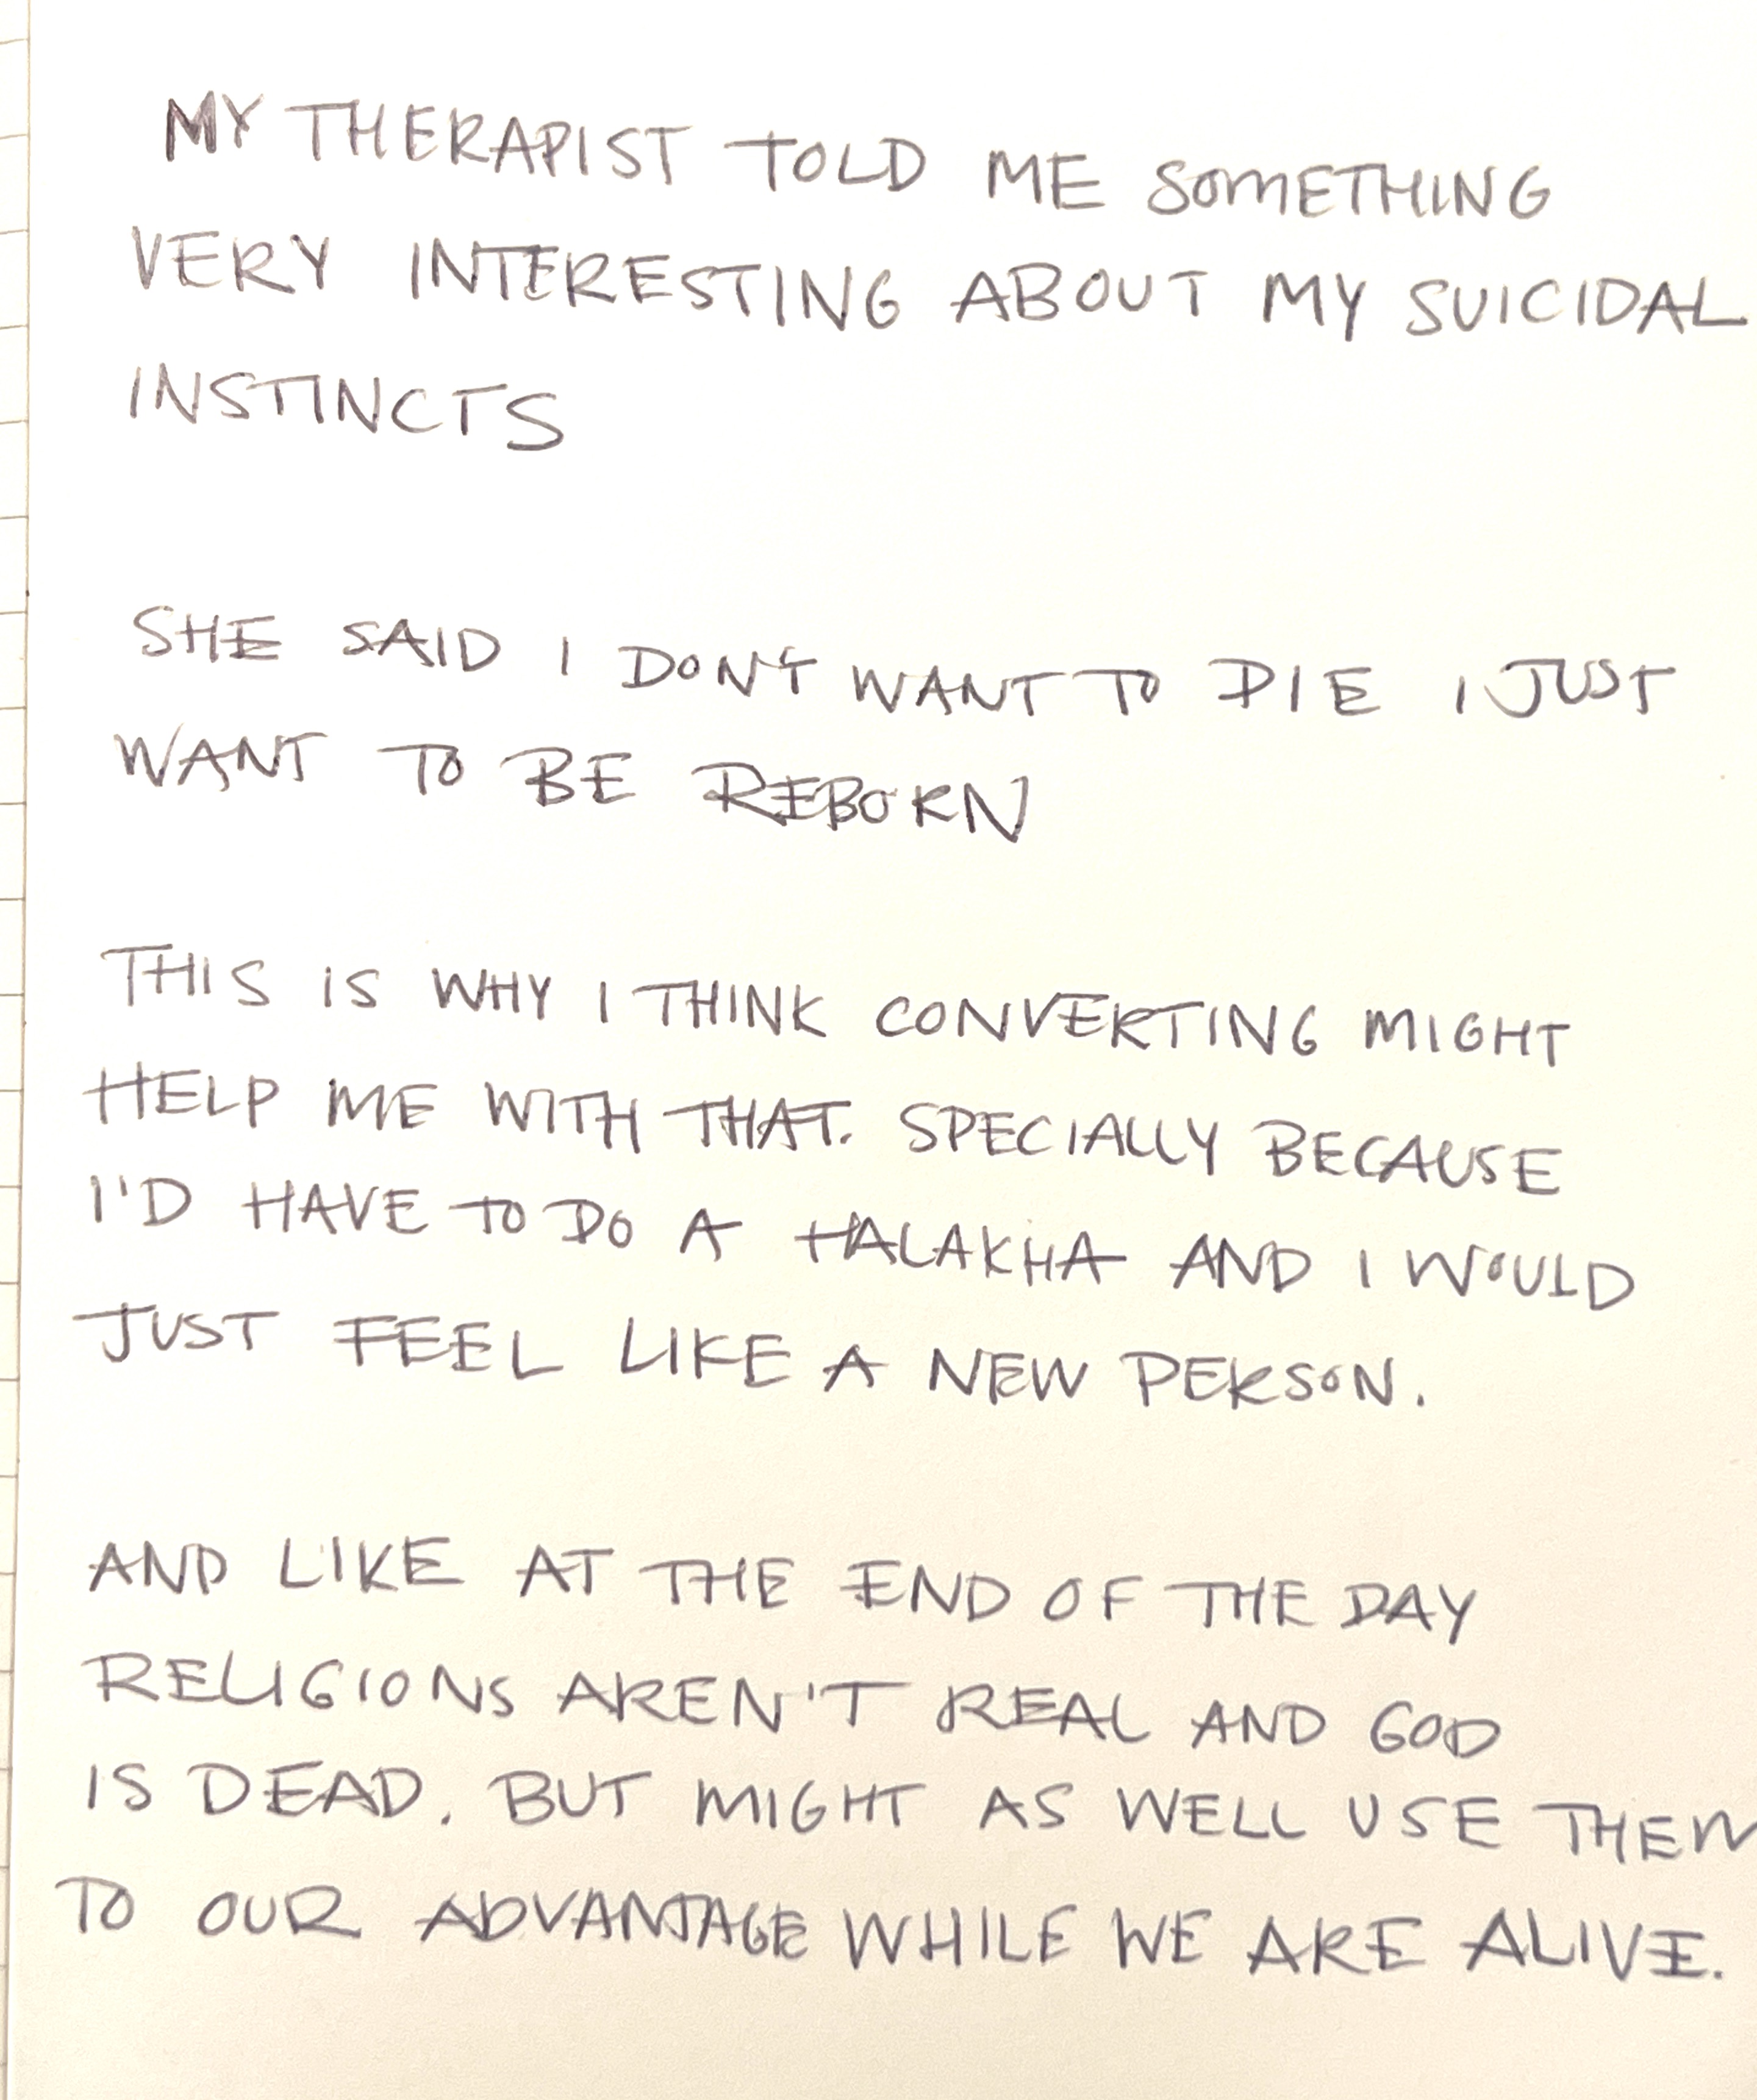 MY THERAPIST TOLD ME SOMETHING
VERY INTERESTING ABOUT MY SUICIDAL
INSTINCTS
SHE SAID I DON'T WANT TO DIE I JUST
WANT TO BE REBORN
THIS IS WHY I THINK CONVERTING MIGHT
HELP ME WITH THAT. SPECIALLY BECAUSE
I'D HAVE TO DO A HALAKHA AND I WOULD
JUST FEEL LIKE A NEW PERSON.
AND LIKE AT THE END OF THE DAY
RELIGIONS AREN'T REAL AND GOD
IS DEAD. BUT MIGHT AS WELL USE THEM
TO OUR ADVANTAGE WHILE WE ARE ALIVE.